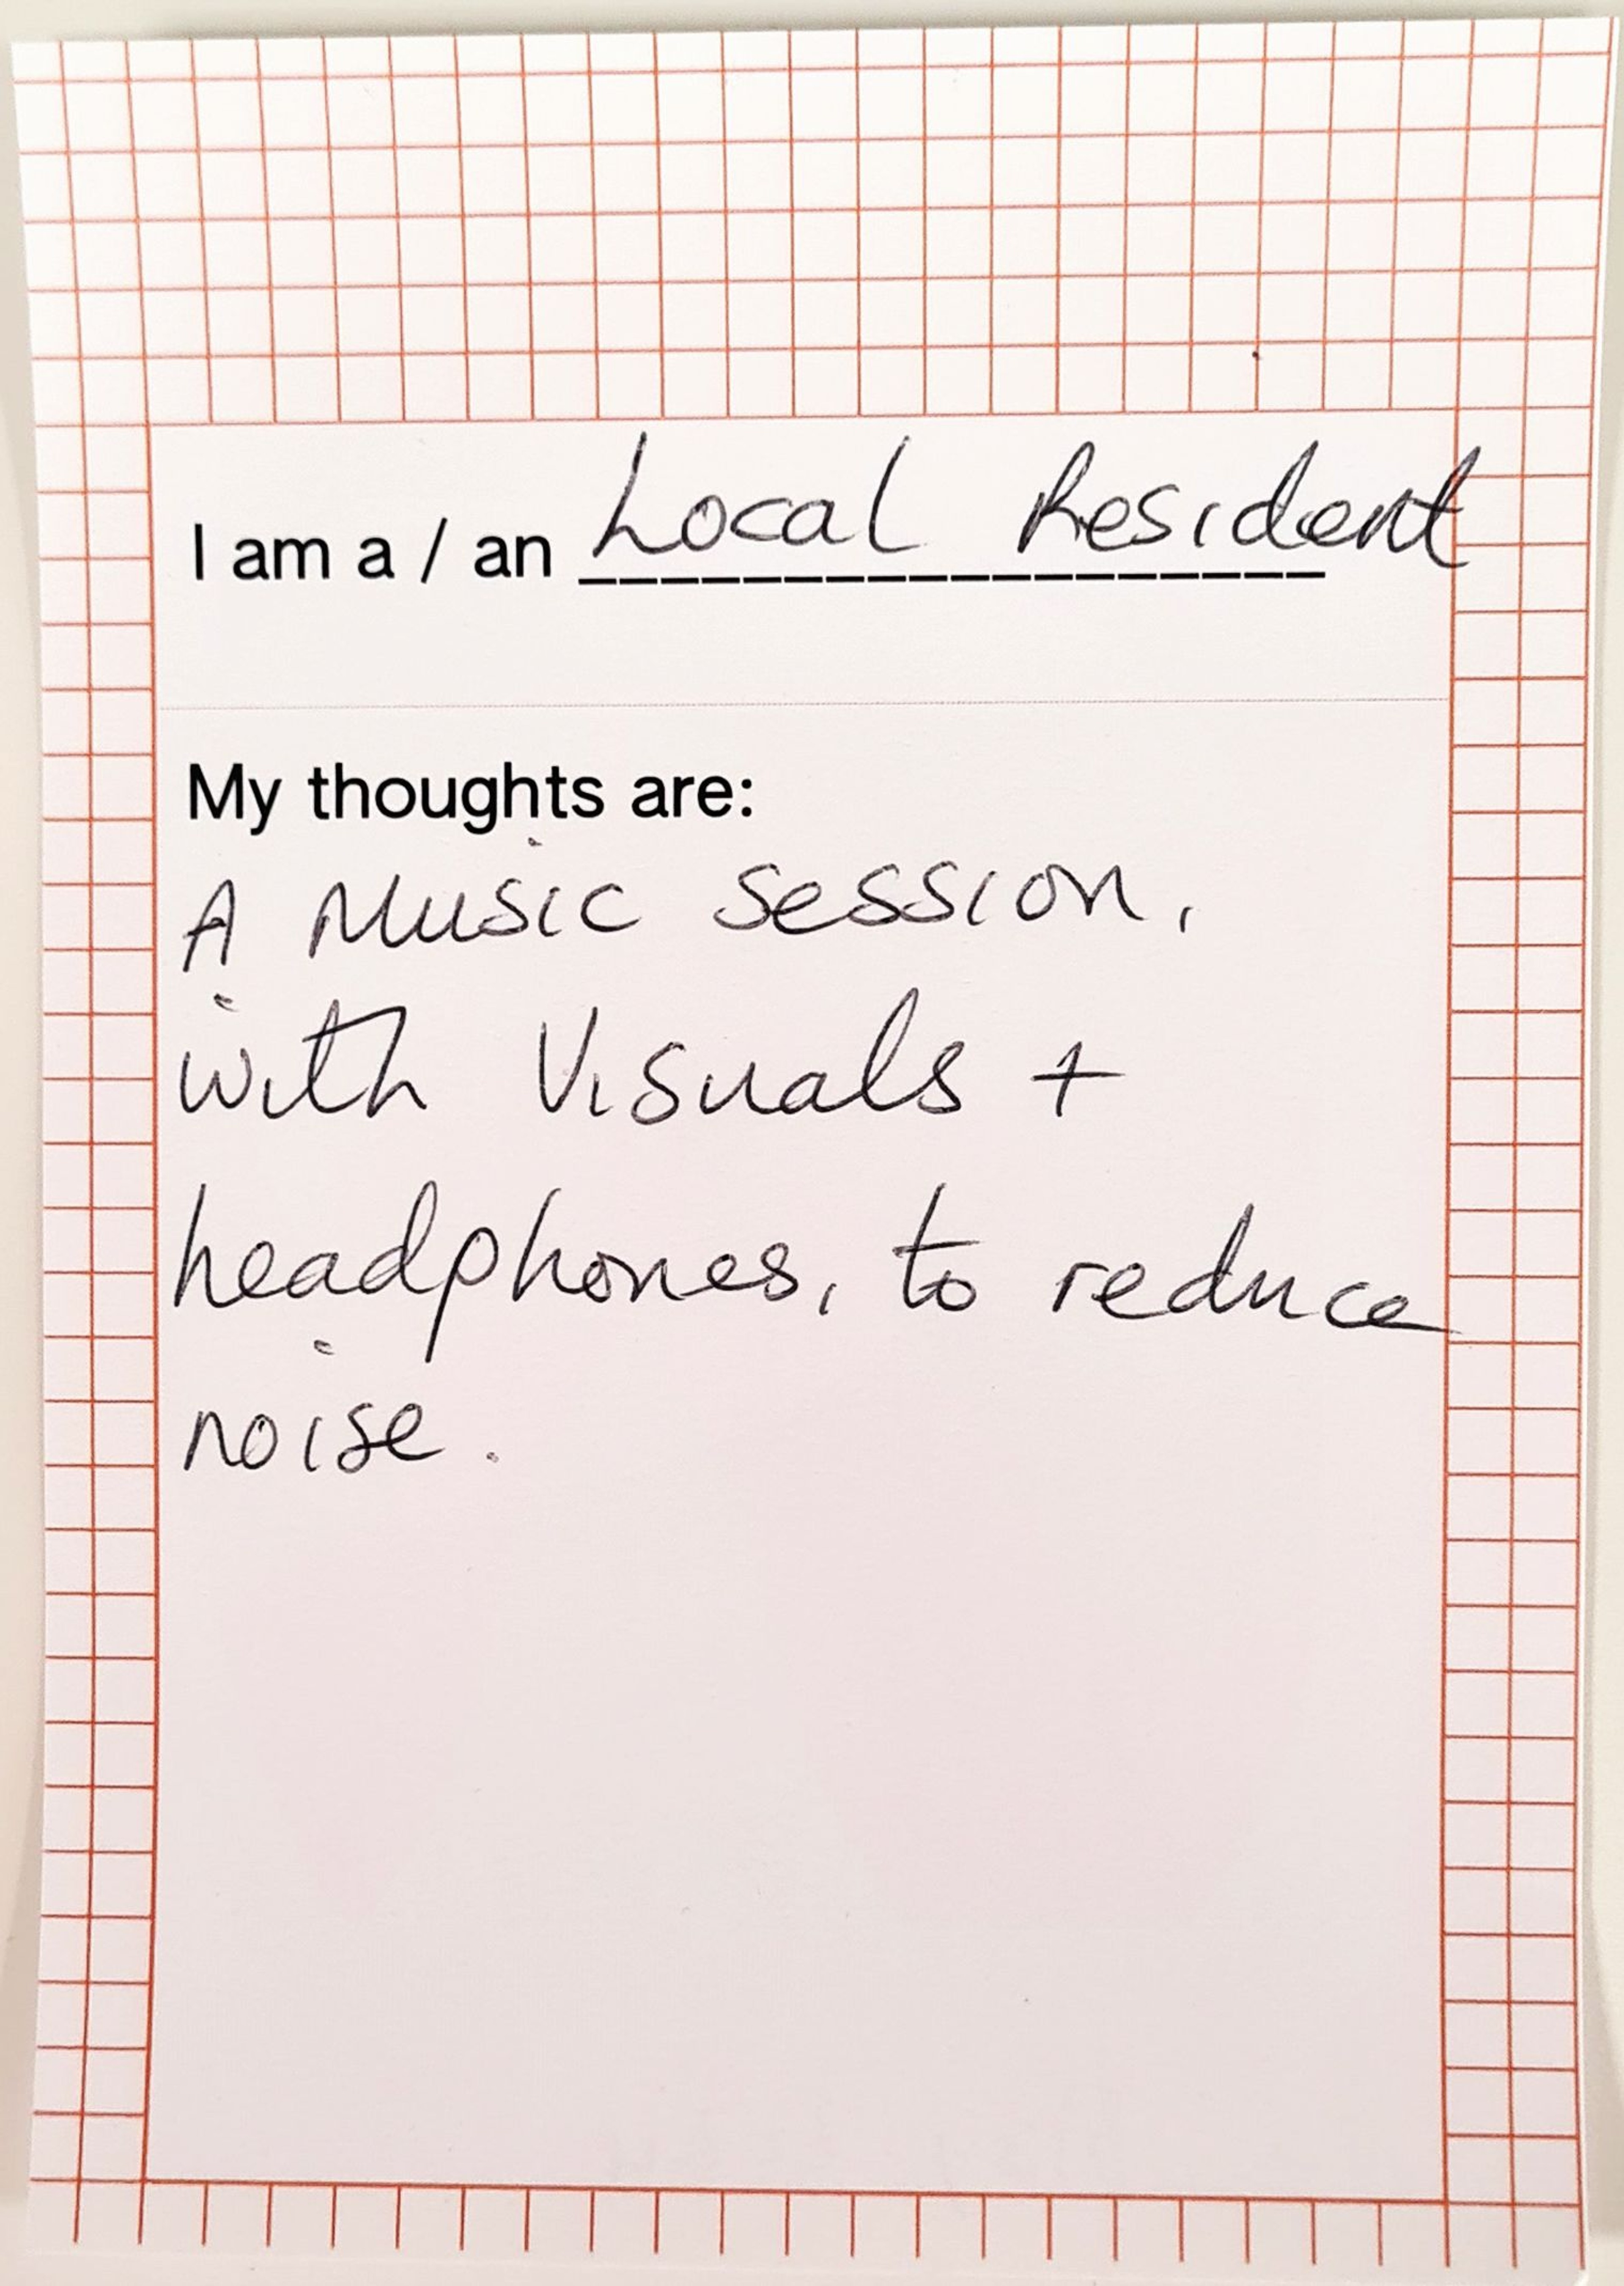 I am a / an Local Resident
My thoughts are:
A Music session,
with Visuals +
headphones, to reduce
noise.